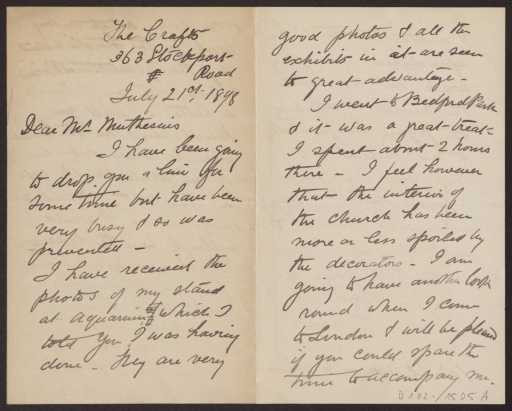 The Crafts
363 Stockport
Road
July 21st, 1898
Dear Mr Muthesius
I have been going
to drop you a line for
some time but have been
very busy & so was
prevented -
I have received the
photos of my stand
at Aquarium which I
told you I was having
done - They are very
good photos & all the
exhibits in it are seen
to great advantage -
I went to Bedford Park
& it was a great treat -
I spent about 2 hours
there - I feel however
that the interior of
the church has been
more or less spoiled by
the decorators - I am
going to have another look
round when I come
to London & will be pleased
if you could spare the
time to accompany me.